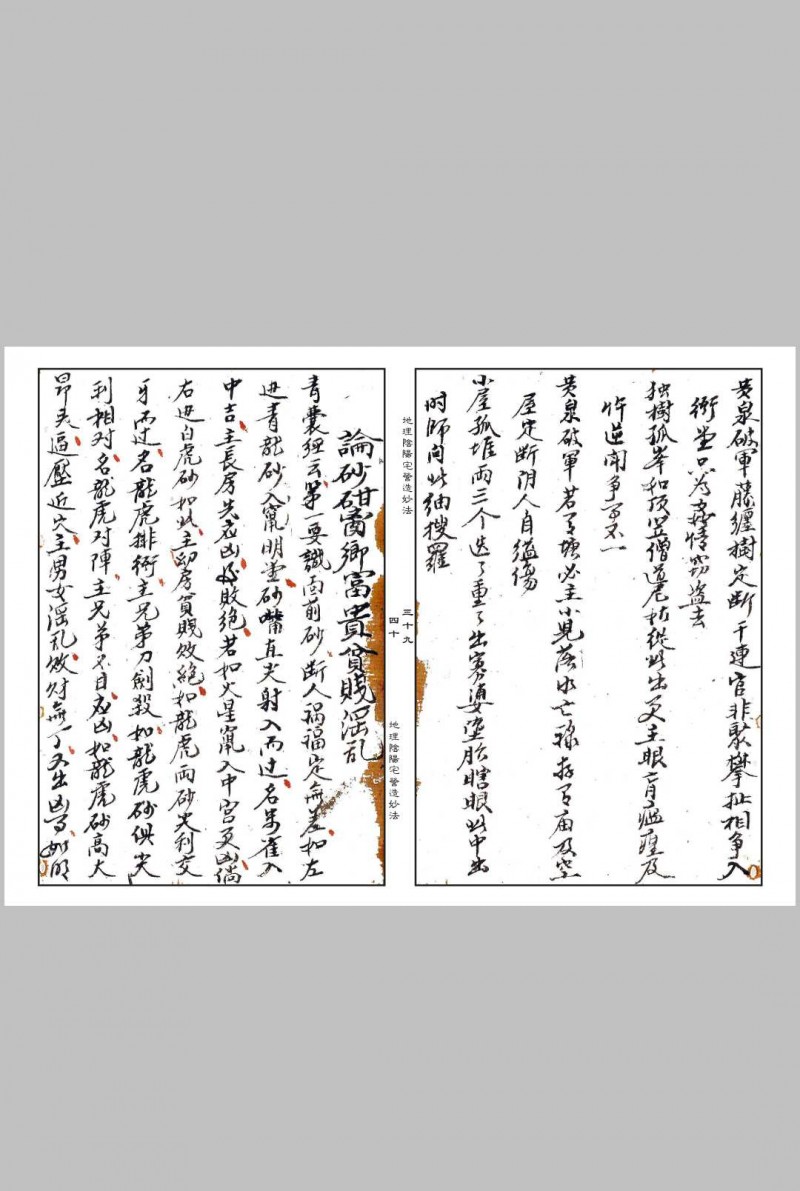 黄泉破軍藤纏樹定断干連官非聚攀扯相争入
衙堂只為姦情窃盗去
独樹孤峯和頂笠僧道尼枯從此出又主眼盲瘟瘴及
忤逆闹争事不一
黄泉破軍若有塘必主小児落水亡禄存有庙及空
屋定断阴人自缢傷
小屋孤堆两三个迭了重了出寡婆堕胎瞎眼此中出
时师向此细搜羅
地理陰陽宅營造妙法
三十九
四十
地理陰陽宅營造妙法
論砂砒富貴貧賤淫乱
青囊經云第一要識面前砂断人祸福定無差如左
边青龍砂入竄明堂砂嘴直尖射入而过名朱雀入
中吉主長房先应凶及敗绝若如火星竄入中宫又凶倘
右边白虎砂如此主幼房貧賤敗絶如龍虎两砂尖利交
牙而过名龍虎排衙主兄弟刀劍殺如龍虎砂俱尖
利相对名龍虎对陣主兄弟不目应凶如龍虎砂高大
昂头逼壓近穴主男女淫乱敗财無丁又出凶事如明